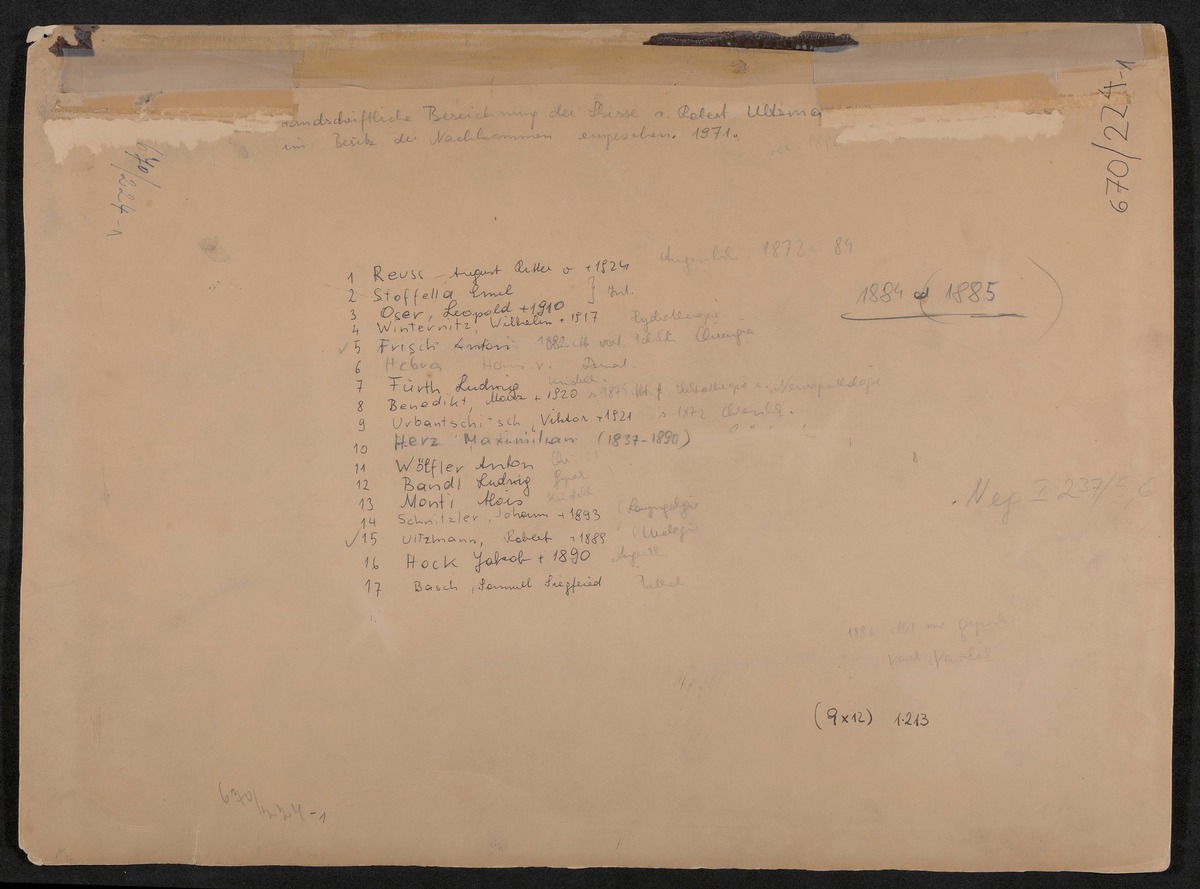 Handschriftliche Bezeichnung der Skizze v. Robert Ultzman
im Besitz der Nachkommen eingesehen. 1971.
670/224-1
670/
224-1
1 Reuss August Ritter v +1924 Augenklin. 1872-84
2 Stoffella Emil } Int.
3 Oser, Leopold +1910
1884 od (1885)
4 Winternitz, Wilhelm +1917 Hydrotherapie
✓5 Frisch Anton 1882 Chirurgie
6 Hebra Hans v. Dermat.
7 Fürth Ludwig Kinderh.
8 Benedikt, Moritz +1920 s. 1875 Abt. f. Elektrotherapie u. Neuropathologie
9 Urbantschitsch, Viktor +1921 s. 1872 Ohrenhlk.
10 Herz Maximilian (1837-1890)
11 Wölfler Anton Chi
12 Bandl Ludwig Gynäk
13 Monti Alois Kinderh
14 Schnitzler, Johann +1893 (Laryngologie
✓15 Ultzmann, Robert +1889 (Urologie
16 Hock Jakob +1890 Augenh
17 Basch, Samuel Siegfried
Neg I 237/5 6
(9x12) 1.213
670/224-1